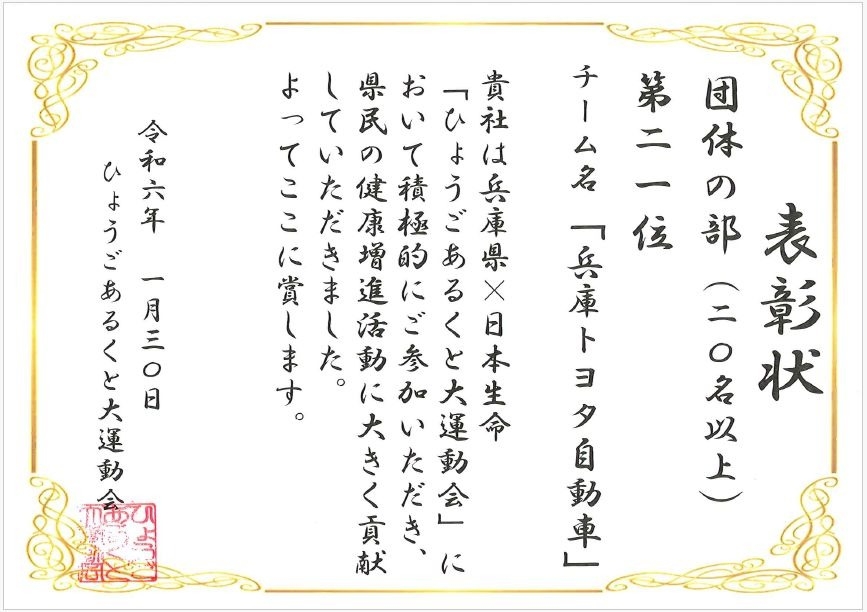 表彰状
団体の部（二〇名以上）
第二一位
チーム名「兵庫トヨタ自動車」
貴社は兵庫県×日本生命
「ひょうごあるくと大運動会」に
おいて積極的にご参加いただき、
県民の健康増進活動に大きく貢献
していただきました。
よってここに賞します。
令和六年　一月三〇日
ひょうごあるくと大運動会